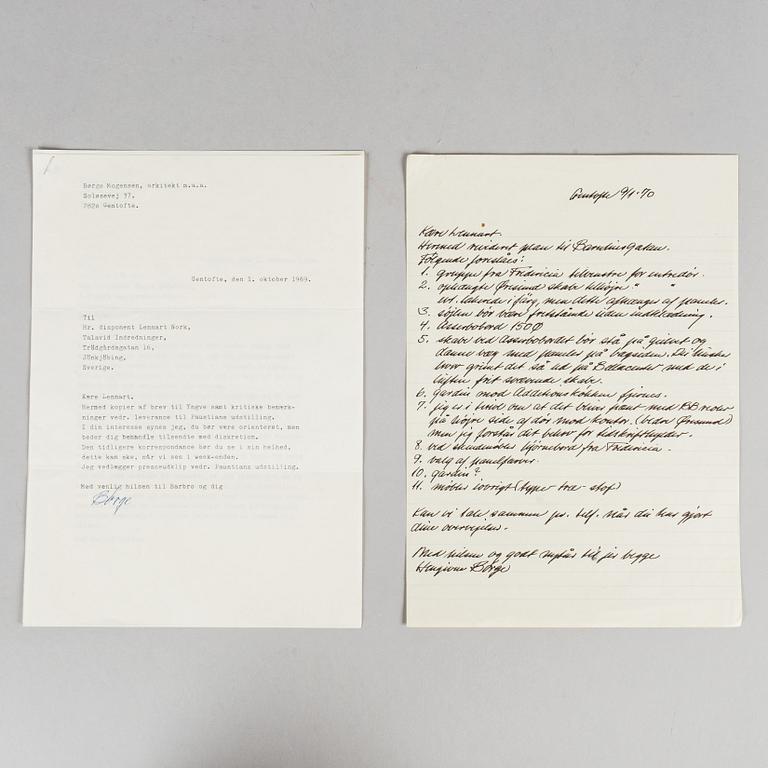 Børge Mogensen, arkitekt m.a.a.
Soløsevej 37.
2820 Gentofte.
Gentofte, den 1. oktober 1969.
Til
Hr. disponent Lennart Nork,
Talavid Indredninger,
Trädgårdagatan 16,
Jönkjöbing,
Sverige.
Kære Lennart.
Hermed kopier af brev til Yngve samt kritiske bemærk-
ninger vedr. leverance til Faustians udstilling.
I din interesse synes jeg, du bør være orienteret, men
beder dig behandle tilsendte med diskretion.
Den tidligere korrespondance bør du se i sin helhed,
dette kan ske, når vi sen i week-enden.
Jeg vedlægger presseudklip vedr. Faustians udstilling.
Med venlig hilsen til Barbro og dig
Børge
Gentofte 9/1-70
Kære Lennart.
Hermed revideret plan til Barnhusgatan.
Følgende foreslås:
1. gruppe fra Fredericia tilvenstre for entredør.
2. ophængte Øresund skabe tilhøjre " "
evt. lakerede i farg, men dette afhænger af paneler.
3. søjlen bør være fritstående uden indklædning.
4. Asserbobord 150Ø
5. skabe ved Asserbobordet bør stå på grinet og
danne væg med paneler på bagsiden. Du husker
hvor grimt det så ud på Bellacenter med de i
luften frit svævende skabe.
6. gardin mod Additionskökken fjernes.
7. jeg er i tvivl om at det bliver pænt med BB reoler
på højre side af dør mod kontor. (bedre Øresund)
men jeg forstår det behov for tidskrifthylder.
8. ved skinnmöbler hjørnebord fra Fredericia.
9. valg af panelfarver.
10. gardin?
11. møbler iøvrigt (typer - træ - stof)
Kan vi tale sammen pr. telf. når du har gjort
dine overvejelser.
Med hilsen og godt nytår til jer begge
Hengivne Børge